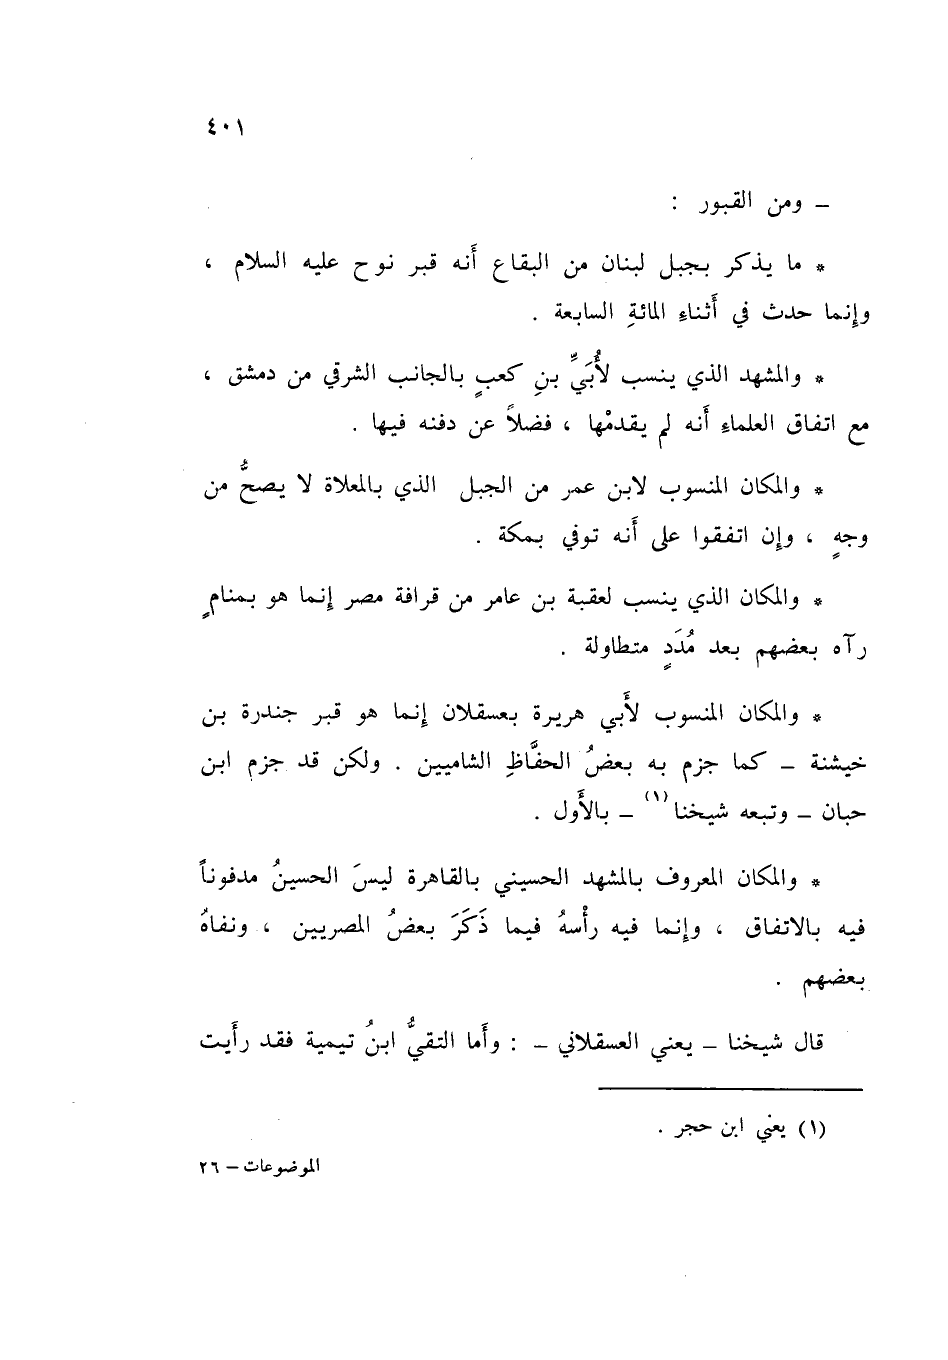 ٤٠١
ـ ومن القبور :
* ما يذكر بجبل لبنان من البقاع أَنه قبر نوح عليه السلام ،
وإِنما حدث في أَثناءِ المائةِ السابعة .
* والمشهد الذي ينسب لأُبَيِّ بنِ كعبٍ بالجانب الشرقي من دمشق ،
مع اتفاق العلماءِ أَنه لم يقدمْها ، فضلاً عن دفنه فيها .
* والمكان المنسوب لابن عمر من الجبل الذي بالمعلاة لا يصحُّ من
وجهٍ ، وإِن اتفقوا على أَنه توفي بمكة .
* والمكان الذي ينسب لعقبة بن عامر من قرافة مصر إِنما هو بمنامٍ
رآه بعضهم بعد مُدَدٍ متطاولة .
* والمكان المنسوب لأَبي هريرة بعسقلان إِنما هو قبر جندرة بن
خيشنة ـ كما جزم به بعضُ الحفَّاظِ الشاميين . ولكن قد جزم ابن
حبان ـ وتبعه شيخنا (١) ـ بالأَول .
* والمكان المعروف بالمشهد الحسيني بالقاهرة ليسَ الحسينُ مدفوناً
فيه بالاتفاق ، وإِنما فيه رأْسهُ فيما ذَكَرَ بعضُ المصريين ، ونفاهُ
بعضهم .
قال شيخنا ـ يعني العسقلاني ـ : وأَما التقيُّ ابنُ تيمية فقد رأَيت
(١) يعني ابن حجر .
الموضوعات – ٢٦